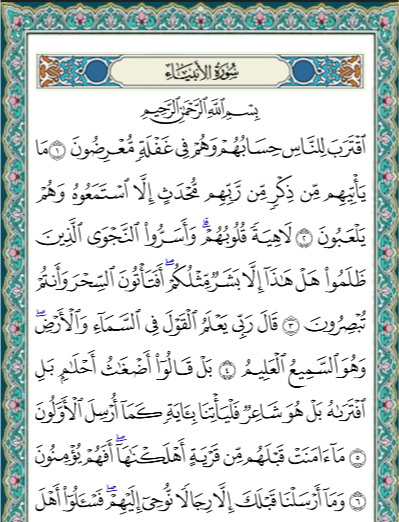 سُورَةُ الأَنبِيَاءِ
بِسْمِ اللَّهِ الرَّحْمَٰنِ الرَّحِيمِ
ٱقْتَرَبَ لِلنَّاسِ حِسَابُهُمْ وَهُمْ فِى غَفْلَةٍ مُّعْرِضُونَ ١ مَا
يَأْتِيهِم مِّن ذِكْرٍ مِّن رَّبِّهِم مُّحْدَثٍ إِلَّا ٱسْتَمَعُوهُ وَهُمْ
يَلْعَبُونَ ٢ لَاهِيَةً قُلُوبُهُمْ ۗ وَأَسَرُّوا۟ ٱلنَّجْوَى ٱلَّذِينَ
ظَلَمُوا۟ هَلْ هَٰذَآ إِلَّا بَشَرٌ مِّثْلُكُمْ ۖ أَفَتَأْتُونَ ٱلسِّحْرَ وَأَنتُمْ
تُبْصِرُونَ ٣ قَالَ رَبِّى يَعْلَمُ ٱلْقَوْلَ فِى ٱلسَّمَآءِ وَٱلْأَرْضِ ۖ
وَهُوَ ٱلسَّمِيعُ ٱلْعَلِيمُ ٤ بَلْ قَالُوٓا۟ أَضْغَٰثُ أَحْلَٰمٍۭ بَلِ
ٱفْتَرَىٰهُ بَلْ هُوَ شَاعِرٌ فَلْيَأْتِنَا بِـَٔايَةٍ كَمَآ أُرْسِلَ ٱلْأَوَّلُونَ
٥ مَآ ءَامَنَتْ قَبْلَهُم مِّن قَرْيَةٍ أَهْلَكْنَٰهَآ ۖ أَفَهُمْ يُؤْمِنُونَ
٦ وَمَآ أَرْسَلْنَا قَبْلَكَ إِلَّا رِجَالًا نُّوحِىٓ إِلَيْهِمْ ۖ فَسْـَٔلُوٓا۟ أَهْلَ